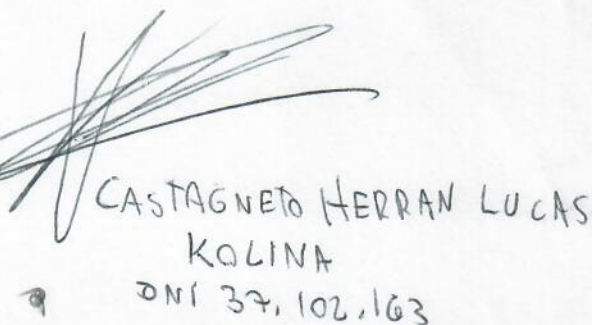 CASTAGNETO HERRAN LUCAS
KOLINA
DNI 37.102.163